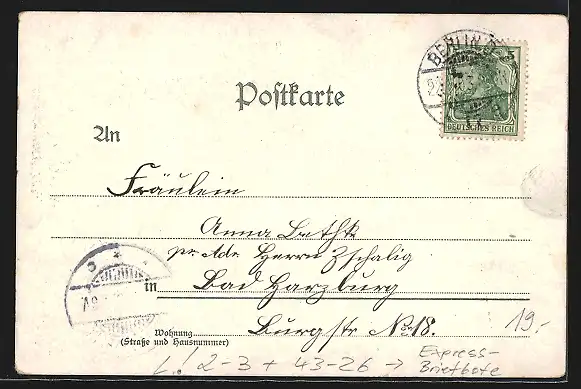 BERLIN
Postkarte
DEUTSCHES REICH
An
Fräulein
Anna Bethke
pr. Adr. Herrn Zschalig
in Bad Harzburg
Wohnung Burgstr No 18.
(Straße und Hausnummer)
19.-
L! 2-3 + 43-26 → Express-
Briefbote